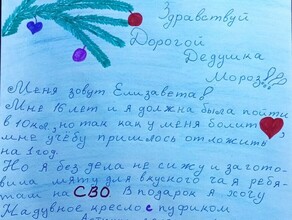 Здравствуй
Дорогой
Дедушка
Мороз!!!
Меня зовут Елизавета!
Мне 16 лет и я должна была пойти
в 10 кл, но так как у меня болит ,
мне учёбу пришлось отложить
на 1 год.
Но я без дела не сижу и загото-
вила мяту для вкусного чая ребя-
там на СВО В подарок я хочу
Надувное кресло с пуфиком